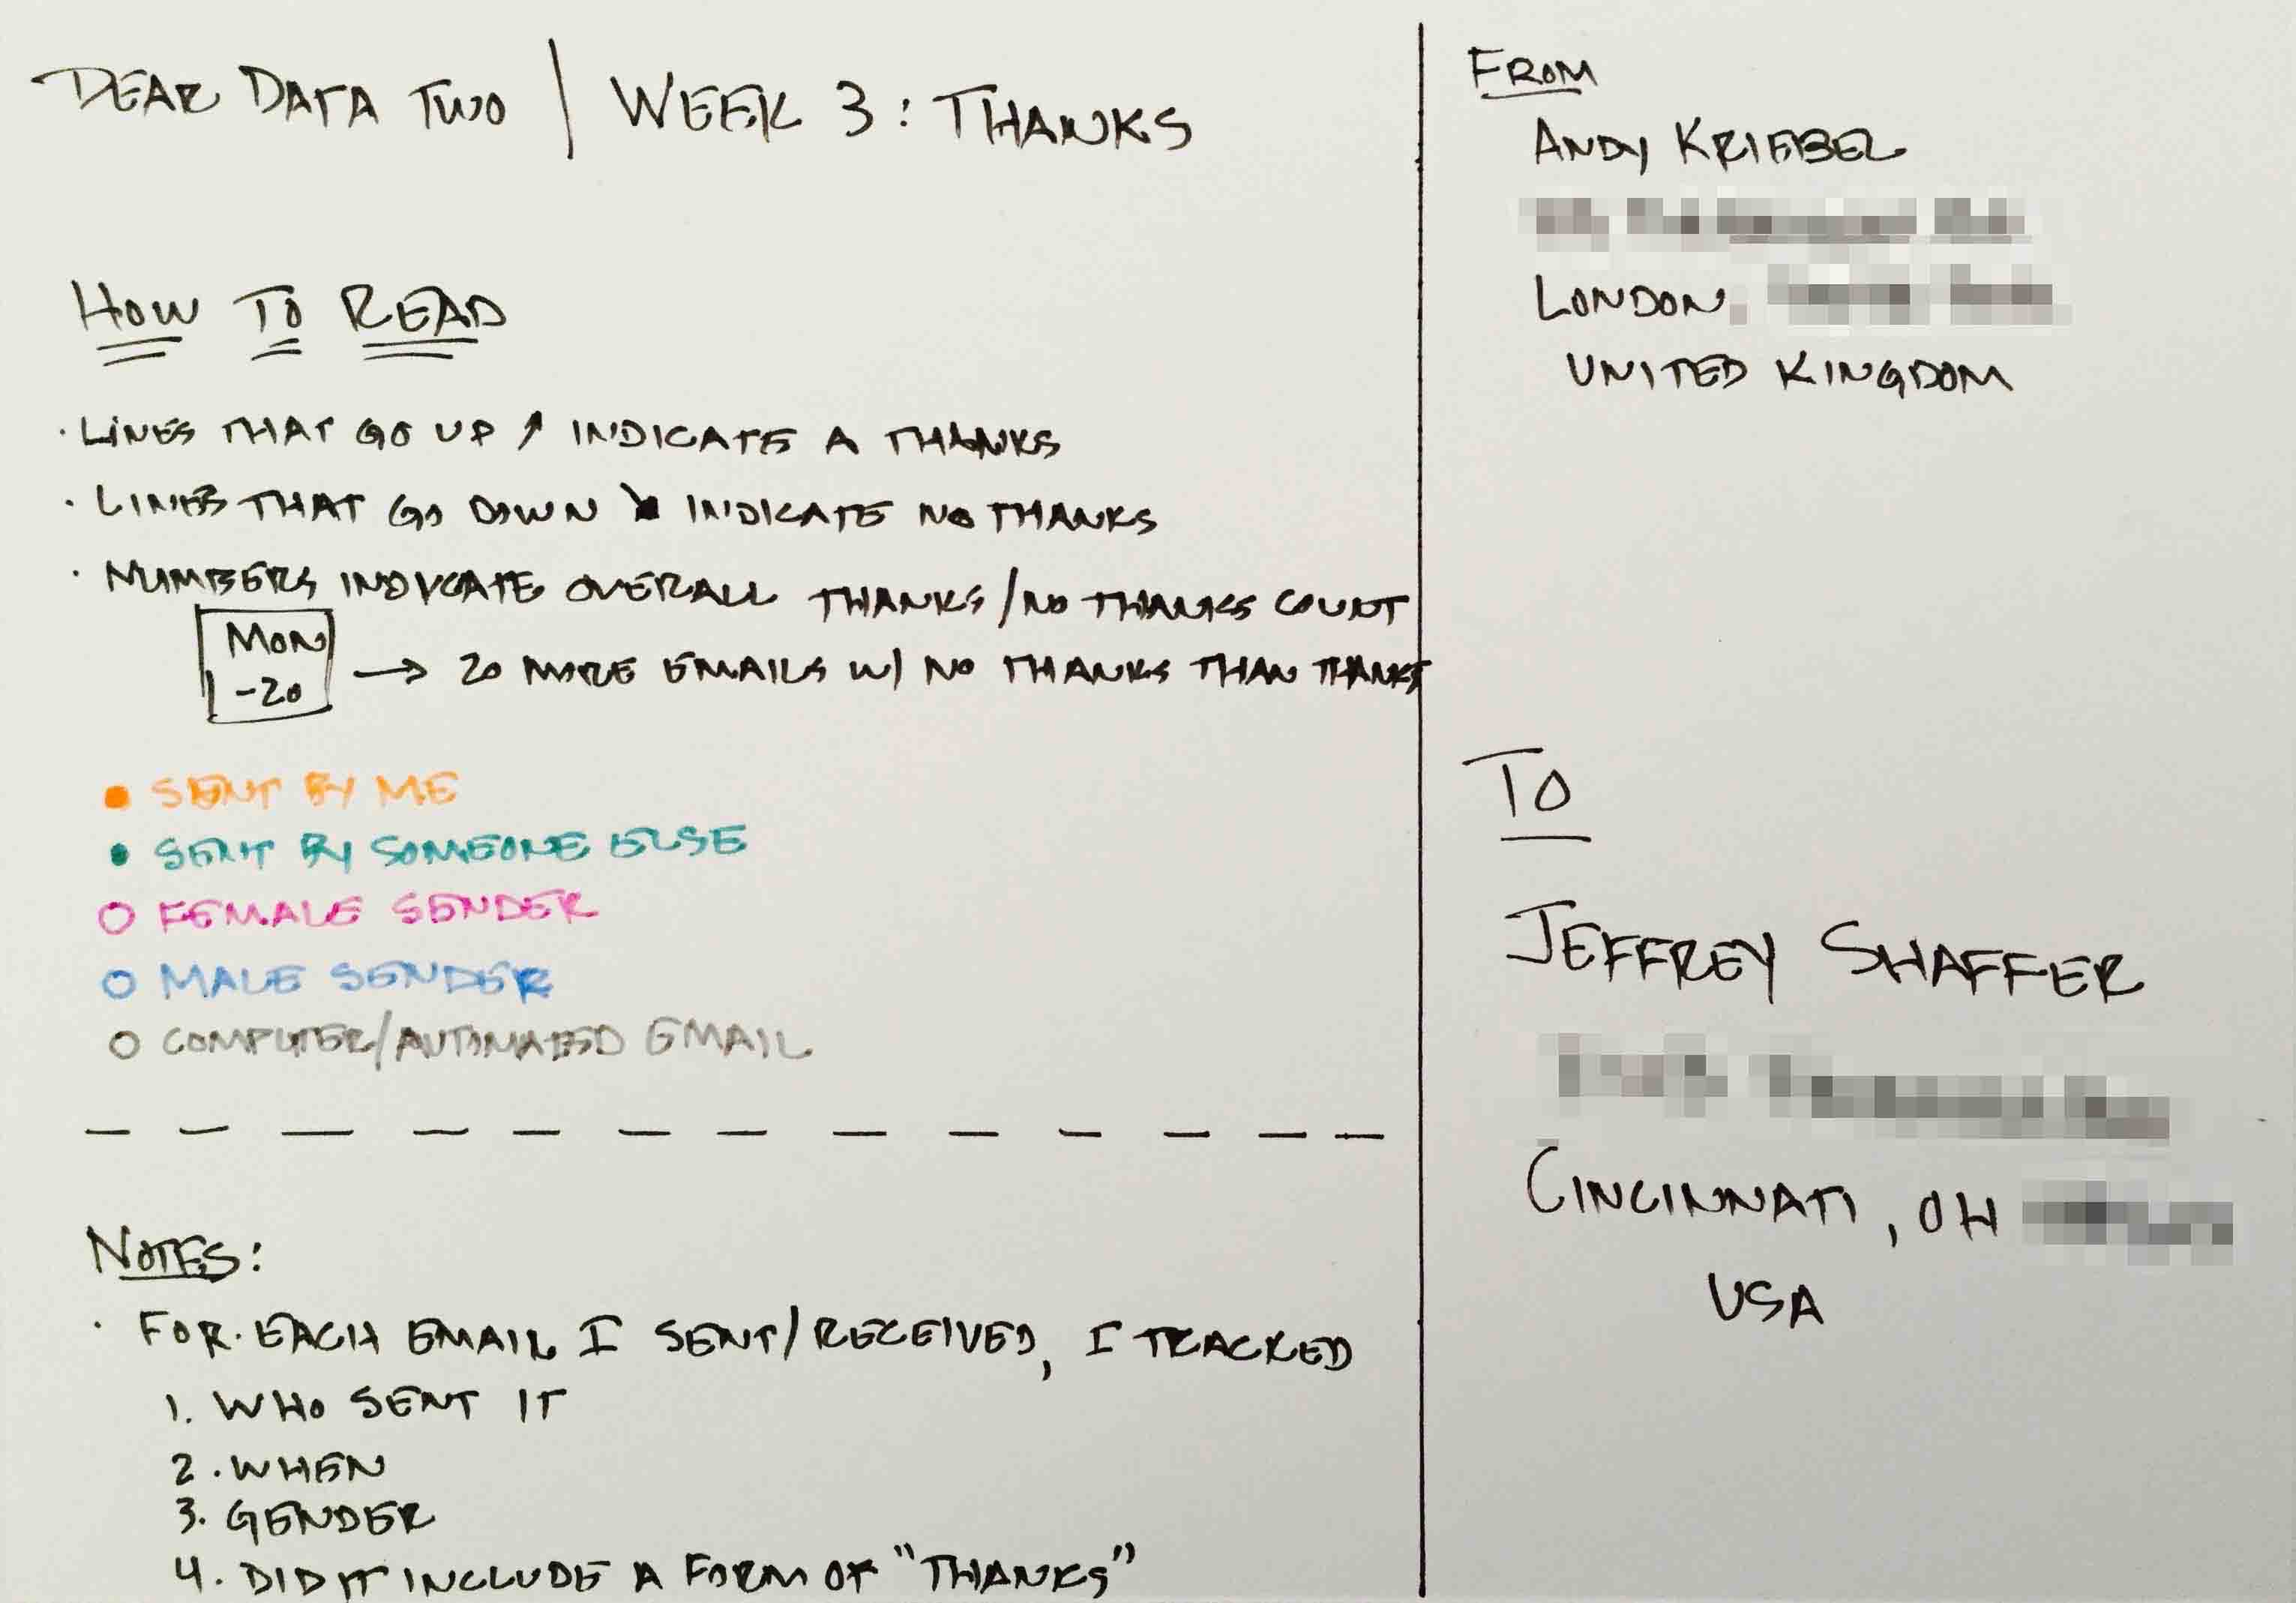 DEAR DATA TWO | WEEK 3: THANKS
HOW TO READ
· LINES THAT GO UP ↗ INDICATE A THANKS
· LINES THAT GO DOWN ↘ INDICATE NO THANKS
· NUMBERS INDICATE OVERALL THANKS/NO THANKS COUNT
MON
-20
→ 20 MORE EMAILS W/ NO THANKS THAN THANKS
● SENT BY ME
● SENT BY SOMEONE ELSE
○ FEMALE SENDER
○ MALE SENDER
○ COMPUTER/AUTOMATED EMAIL
NOTES:
· FOR EACH EMAIL I SENT/RECEIVED, I TRACKED
1. WHO SENT IT
2. WHEN
3. GENDER
4. DID IT INCLUDE A FORM OF "THANKS"
FROM
ANDY KRIEBEL
LONDON
UNITED KINGDOM
TO
JEFFREY SHAFFER
CINCINNATI, OH
USA